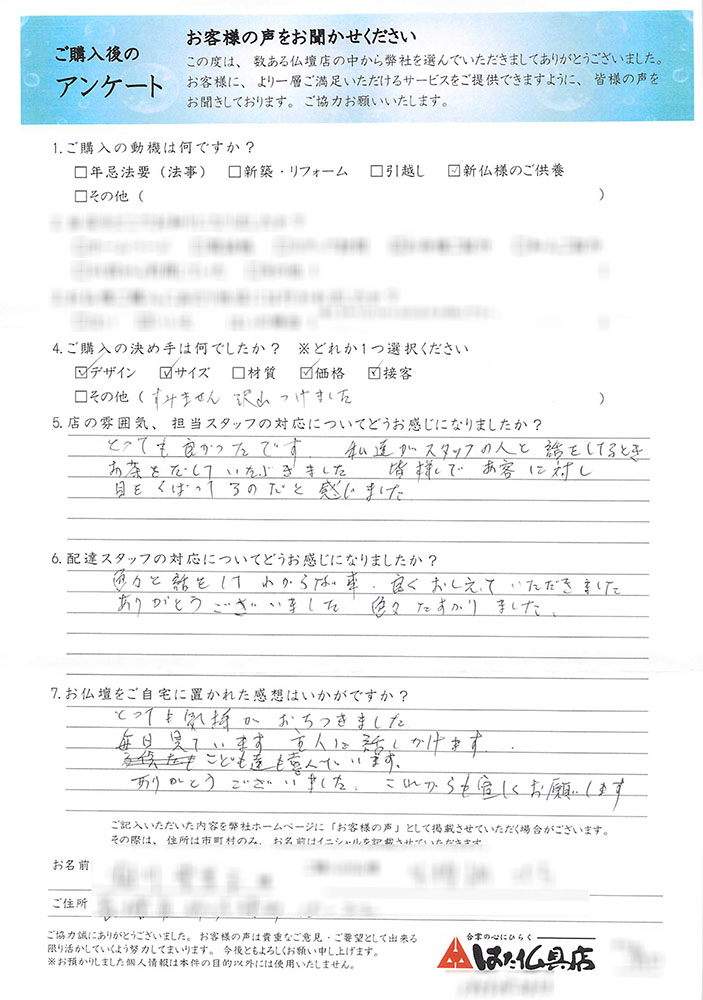 ご購入後の
アンケート
お客様の声をお聞かせください
この度は、数ある仏壇店の中から弊社を選んでいただきましてありがとうございました。
お客様に、より一層ご満足いただけるサービスをご提供できますように、皆様の声を
お聞きしております。ご協力お願いいたします。
1.ご購入の動機は何ですか？
□年忌法要（法事） □新築・リフォーム □引越し ☑新仏様のご供養
□その他（ ）
4.ご購入の決め手は何でしたか？ ※どれか1つ選択ください
☑デザイン ☑サイズ □材質 ☑価格 ☑接客
□その他（ すみません 沢山つけました ）
5.店の雰囲気、担当スタッフの対応についてどうお感じになりましたか？
とっても良かったです。 私達がスタッフの人と話をしてるとき
お茶をだしていただきました 皆様で お客に対し
目をくばってるのだと感じました
6.配達スタッフの対応についてどうお感じになりましたか？
色々と話をして わからない事、良くおしえて いただきました
ありがとうございました 色々たすかりました。
7.お仏壇をご自宅に置かれた感想はいかがですか？
とっても気持がおちつきました
毎日見ています 主人に話しかけます。
こども達も喜んでいます。
ありがとうございました。これからも宜しくお願いします
ご記入いただいた内容を弊社ホームページに「お客様の声」として掲載させていただく場合がございます。
その際は、住所は市町村のみ、お名前はイニシャルを記載させていただきます
お名前
ご住所
ご協力誠にありがとうございました。お客様の声は貴重なご意見・ご要望として出来る
限り活かしていくよう努力してまいります。今後ともよろしくお願い申し上げます。
※お預かりしました個人情報は本件の目的以外には使用いたしません。
合掌の心にひらく
はた仏具店